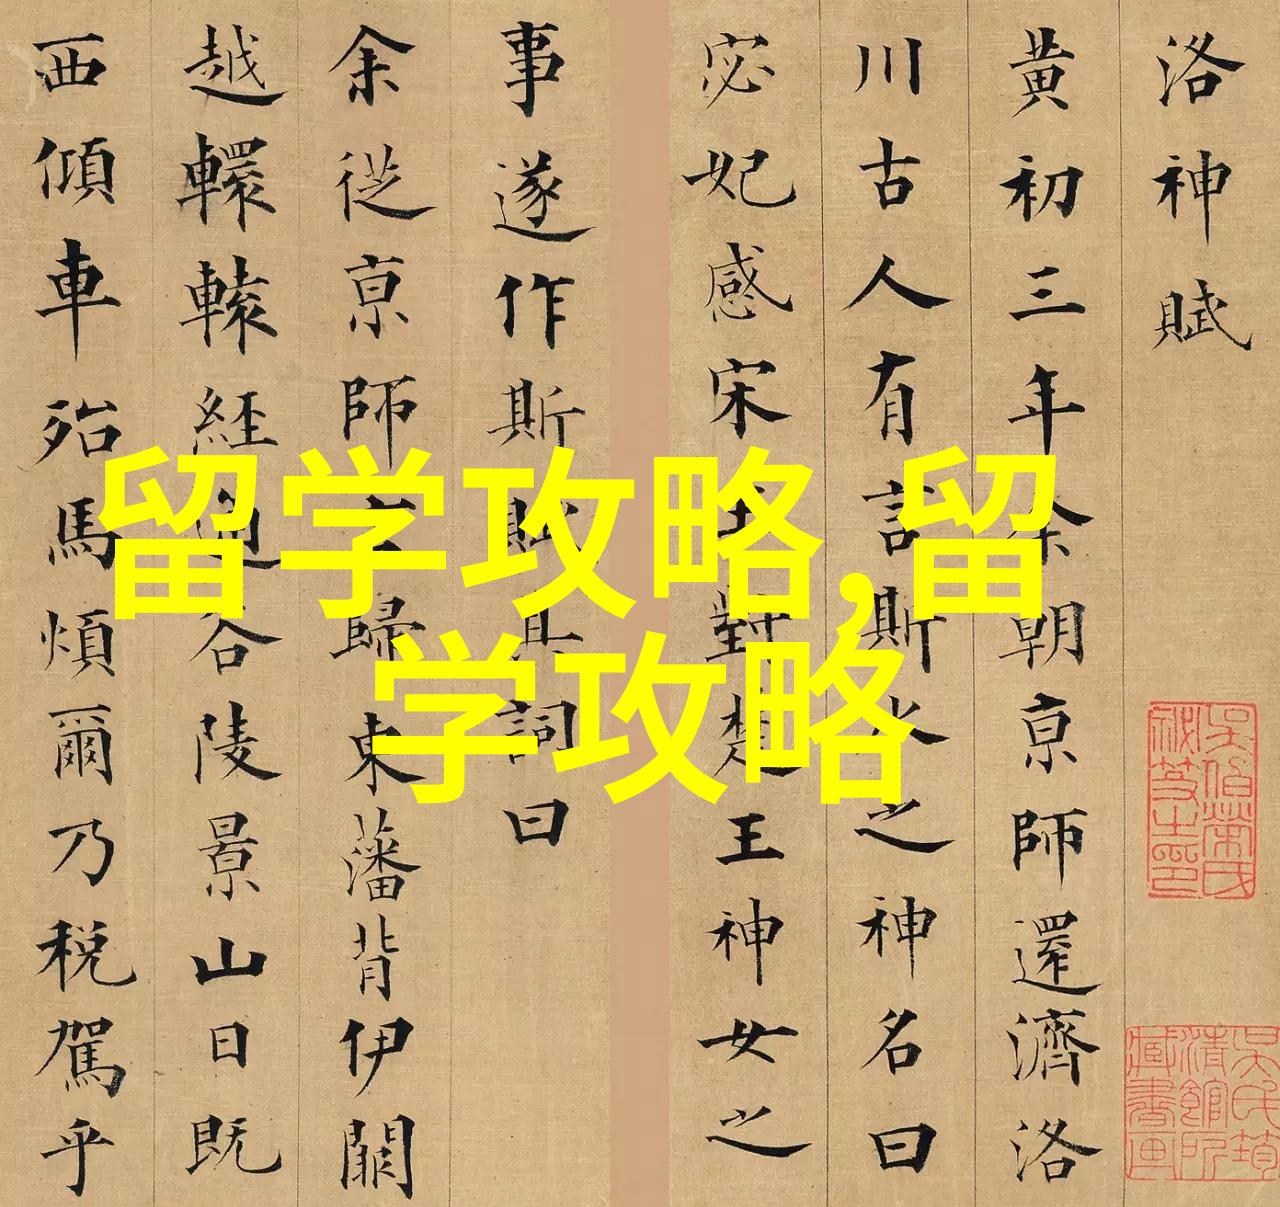 洛神賦
黄初三年余朝京師還濟洛
川古人有言斯水之神名曰
宓妃感宋玉對楚王神女之
事遂作斯賦其詞曰
余從京師言歸東藩背伊闕
越轘轅經通谷陵景山日既
西傾車殆馬煩爾乃税駕乎
留学攻略,留
学攻略